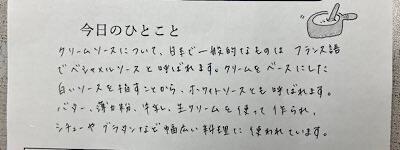 今日のひとこと
クリームソースについて、日本で一般的なものは フランス語
でベシャメルソースと呼ばれます。クリームをベースにした
白いソースを指すことから、ホワイトソースとも呼ばれます。
バター、薄力粉、牛乳、生クリームを使って作られ、
シチューやグラタンなど幅広い料理に使われています。